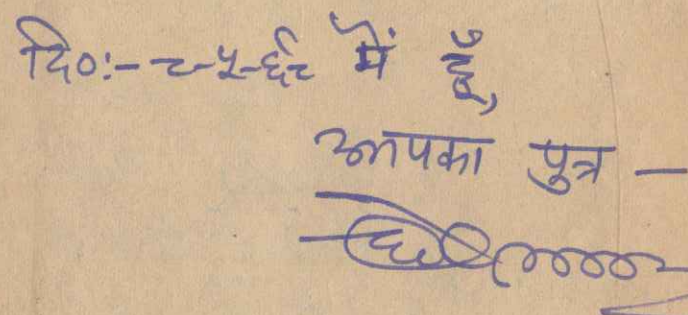 दि०:- ८-५-६८ में हूँ,
आपका पुत्र —